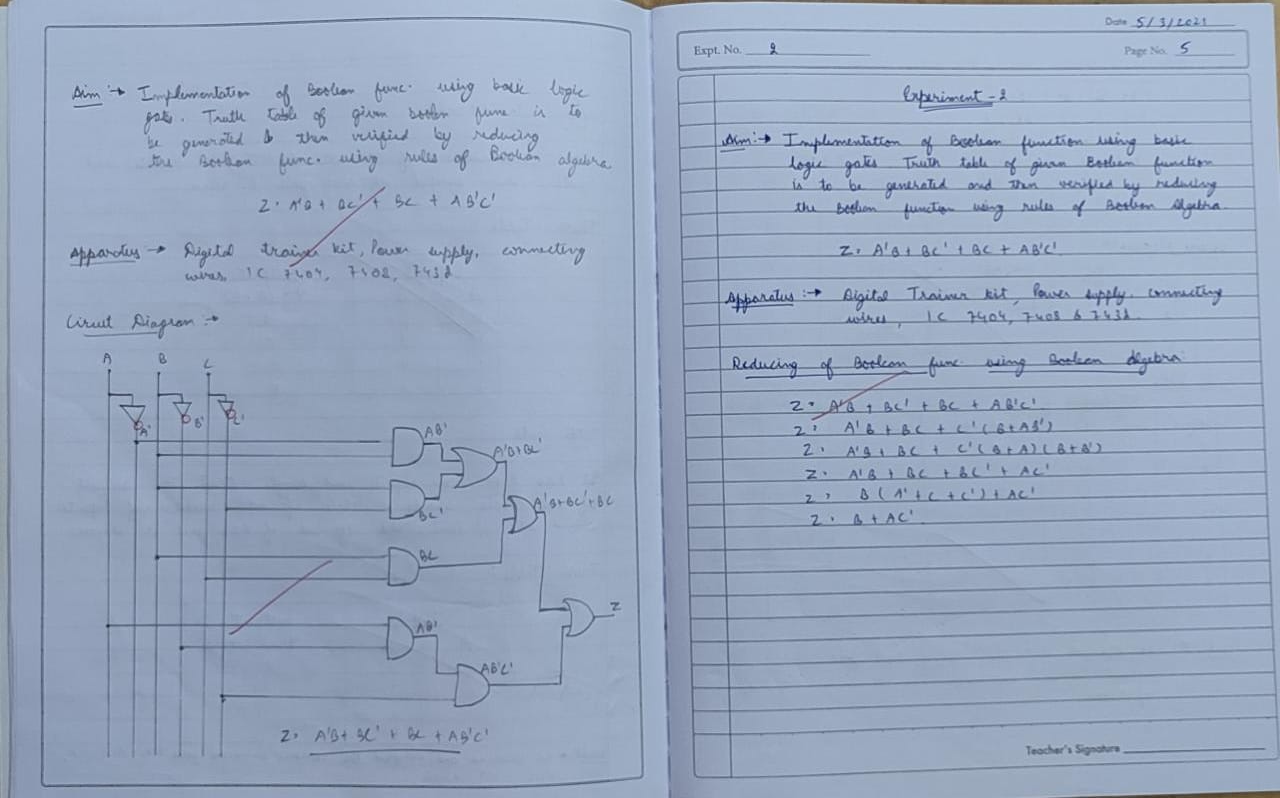 Aim :→ Implementation of Boolean func. using basic logic
gats. Truth table of given boolen func is to
be generated & then verified by reducing
the Boolean func. using rules of Boolian algebra
Z = A'B + BC' + BC + AB'C'
Apparatus → Digital trainer kit, Power supply, connecting
wires, IC 7404, 7408, 7432
Circuit Diagram :→
A B C
A' B' C'
AB'
A'B+BC'
BC'
A'B+BC'+BC
BC
Z
AB'
AB'C'
Z = A'B + BC' + BC + AB'C'
Date 5/3/2021
Expt. No. 2
Page No. 5
Experiment - 2
Aim :→ Implementation of Boolean function using basic
logic gates Truth table of given Boolean function
is to be generated and then verified by reducing
the Boolean function using rules of Boolean Algebra.
Z = A'B + BC' + BC + AB'C'
Apparatus :→ Digital Trainer kit, Power supply, connecting
wires, IC 7404, 7408 & 7432
Reducing of Boolean func using Boolean algebra
Z = A'B + BC' + BC + AB'C'
Z = A'B + BC + C'(B+AB')
Z = A'B + BC + C'(B+A)(B+B')
Z = A'B + BC + BC' + AC'
Z = B(A'+C+C') + AC'
Z = B + AC'
Teacher's Signature